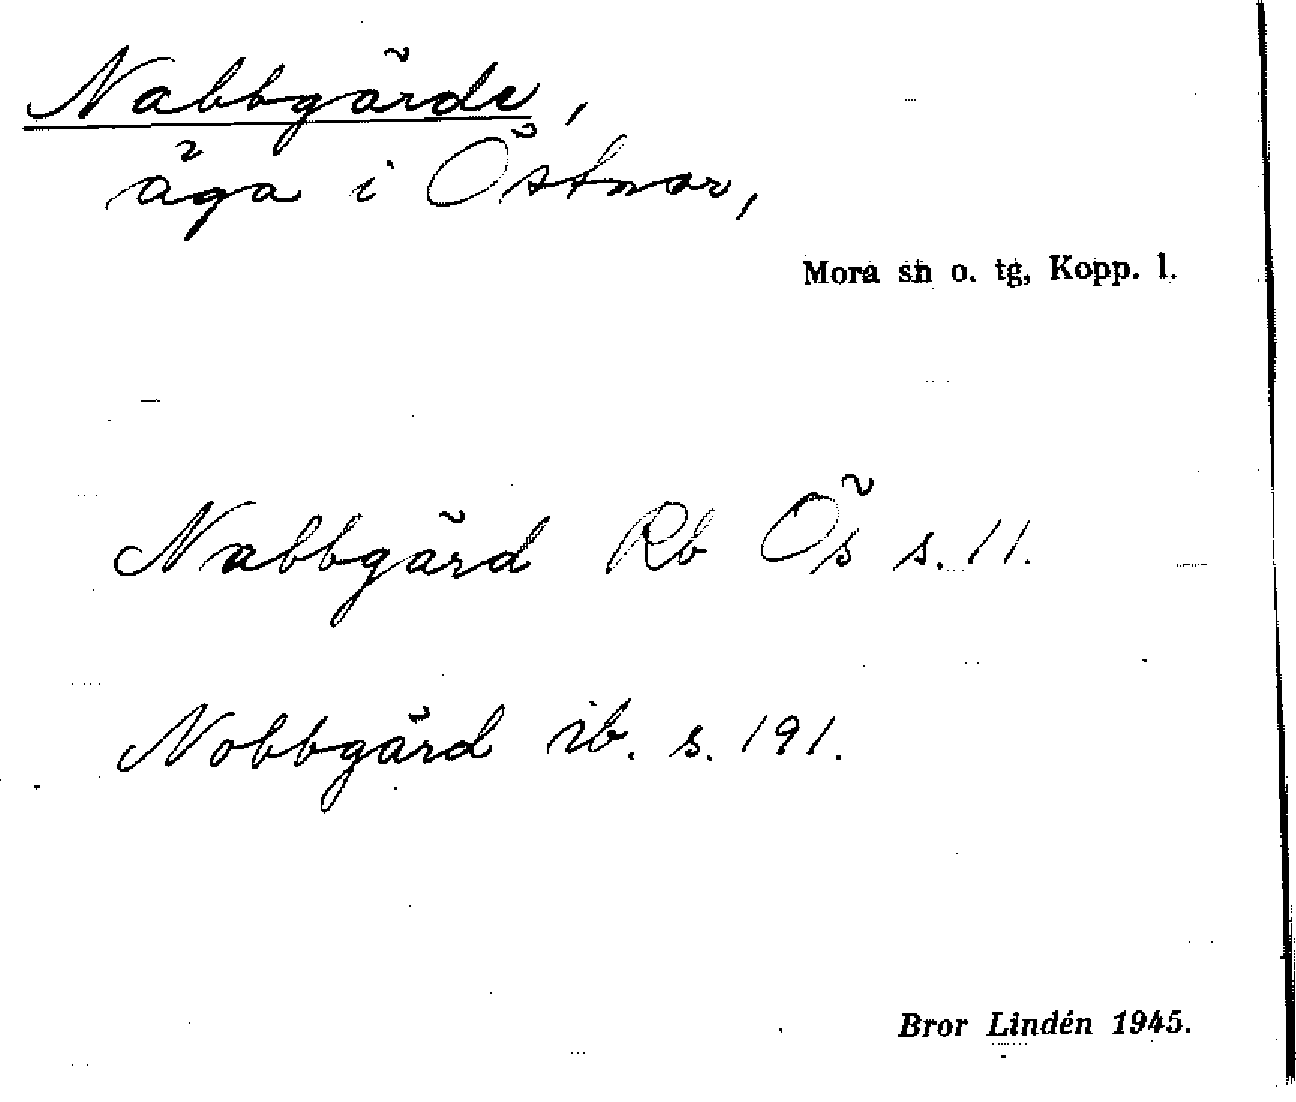 Nabbgärde,
äga i Östnor,
Mora sn o. tg, Kopp. l.
Nabbgärd Rb Ös s. 11.
Nobbgärd ib. s. 191.
Bror Lindén 1945.